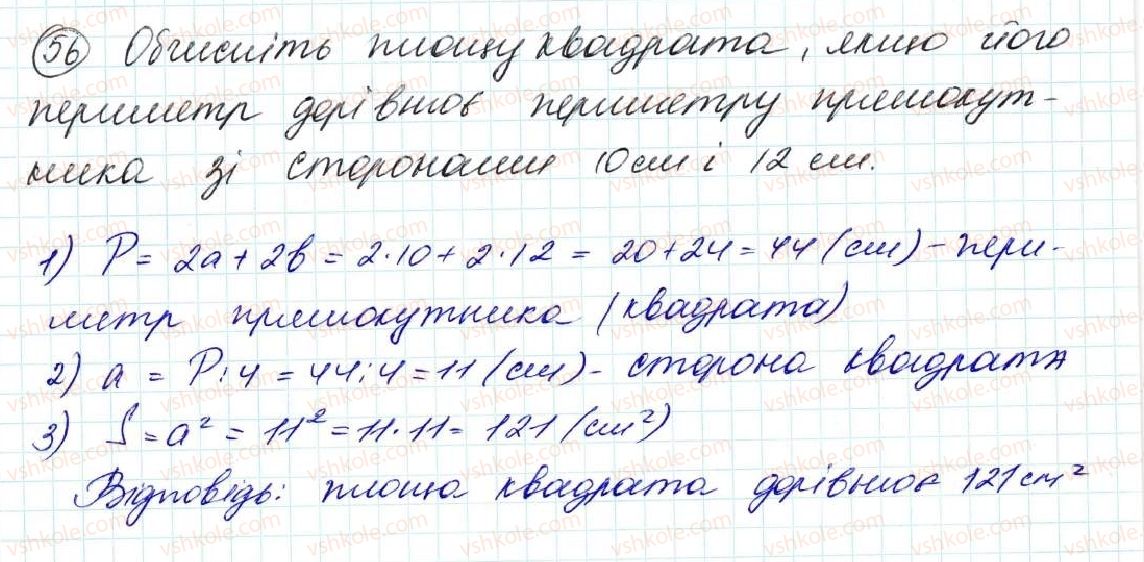 56 Обчисліть площу квадрата, якщо його
периметр дорівнює периметру прямокут-
ника зі сторонами 10 см і 12 см.
1) P = 2a + 2b = 2·10 + 2·12 = 20 + 24 = 44 (см) – пери-
метр прямокутника (квадрата)
2) a = P:4 = 44:4 = 11 (см) – сторона квадрата
3) S = a² = 11² = 11·11 = 121 (см²)
Відповідь: площа квадрата дорівнює 121 см²